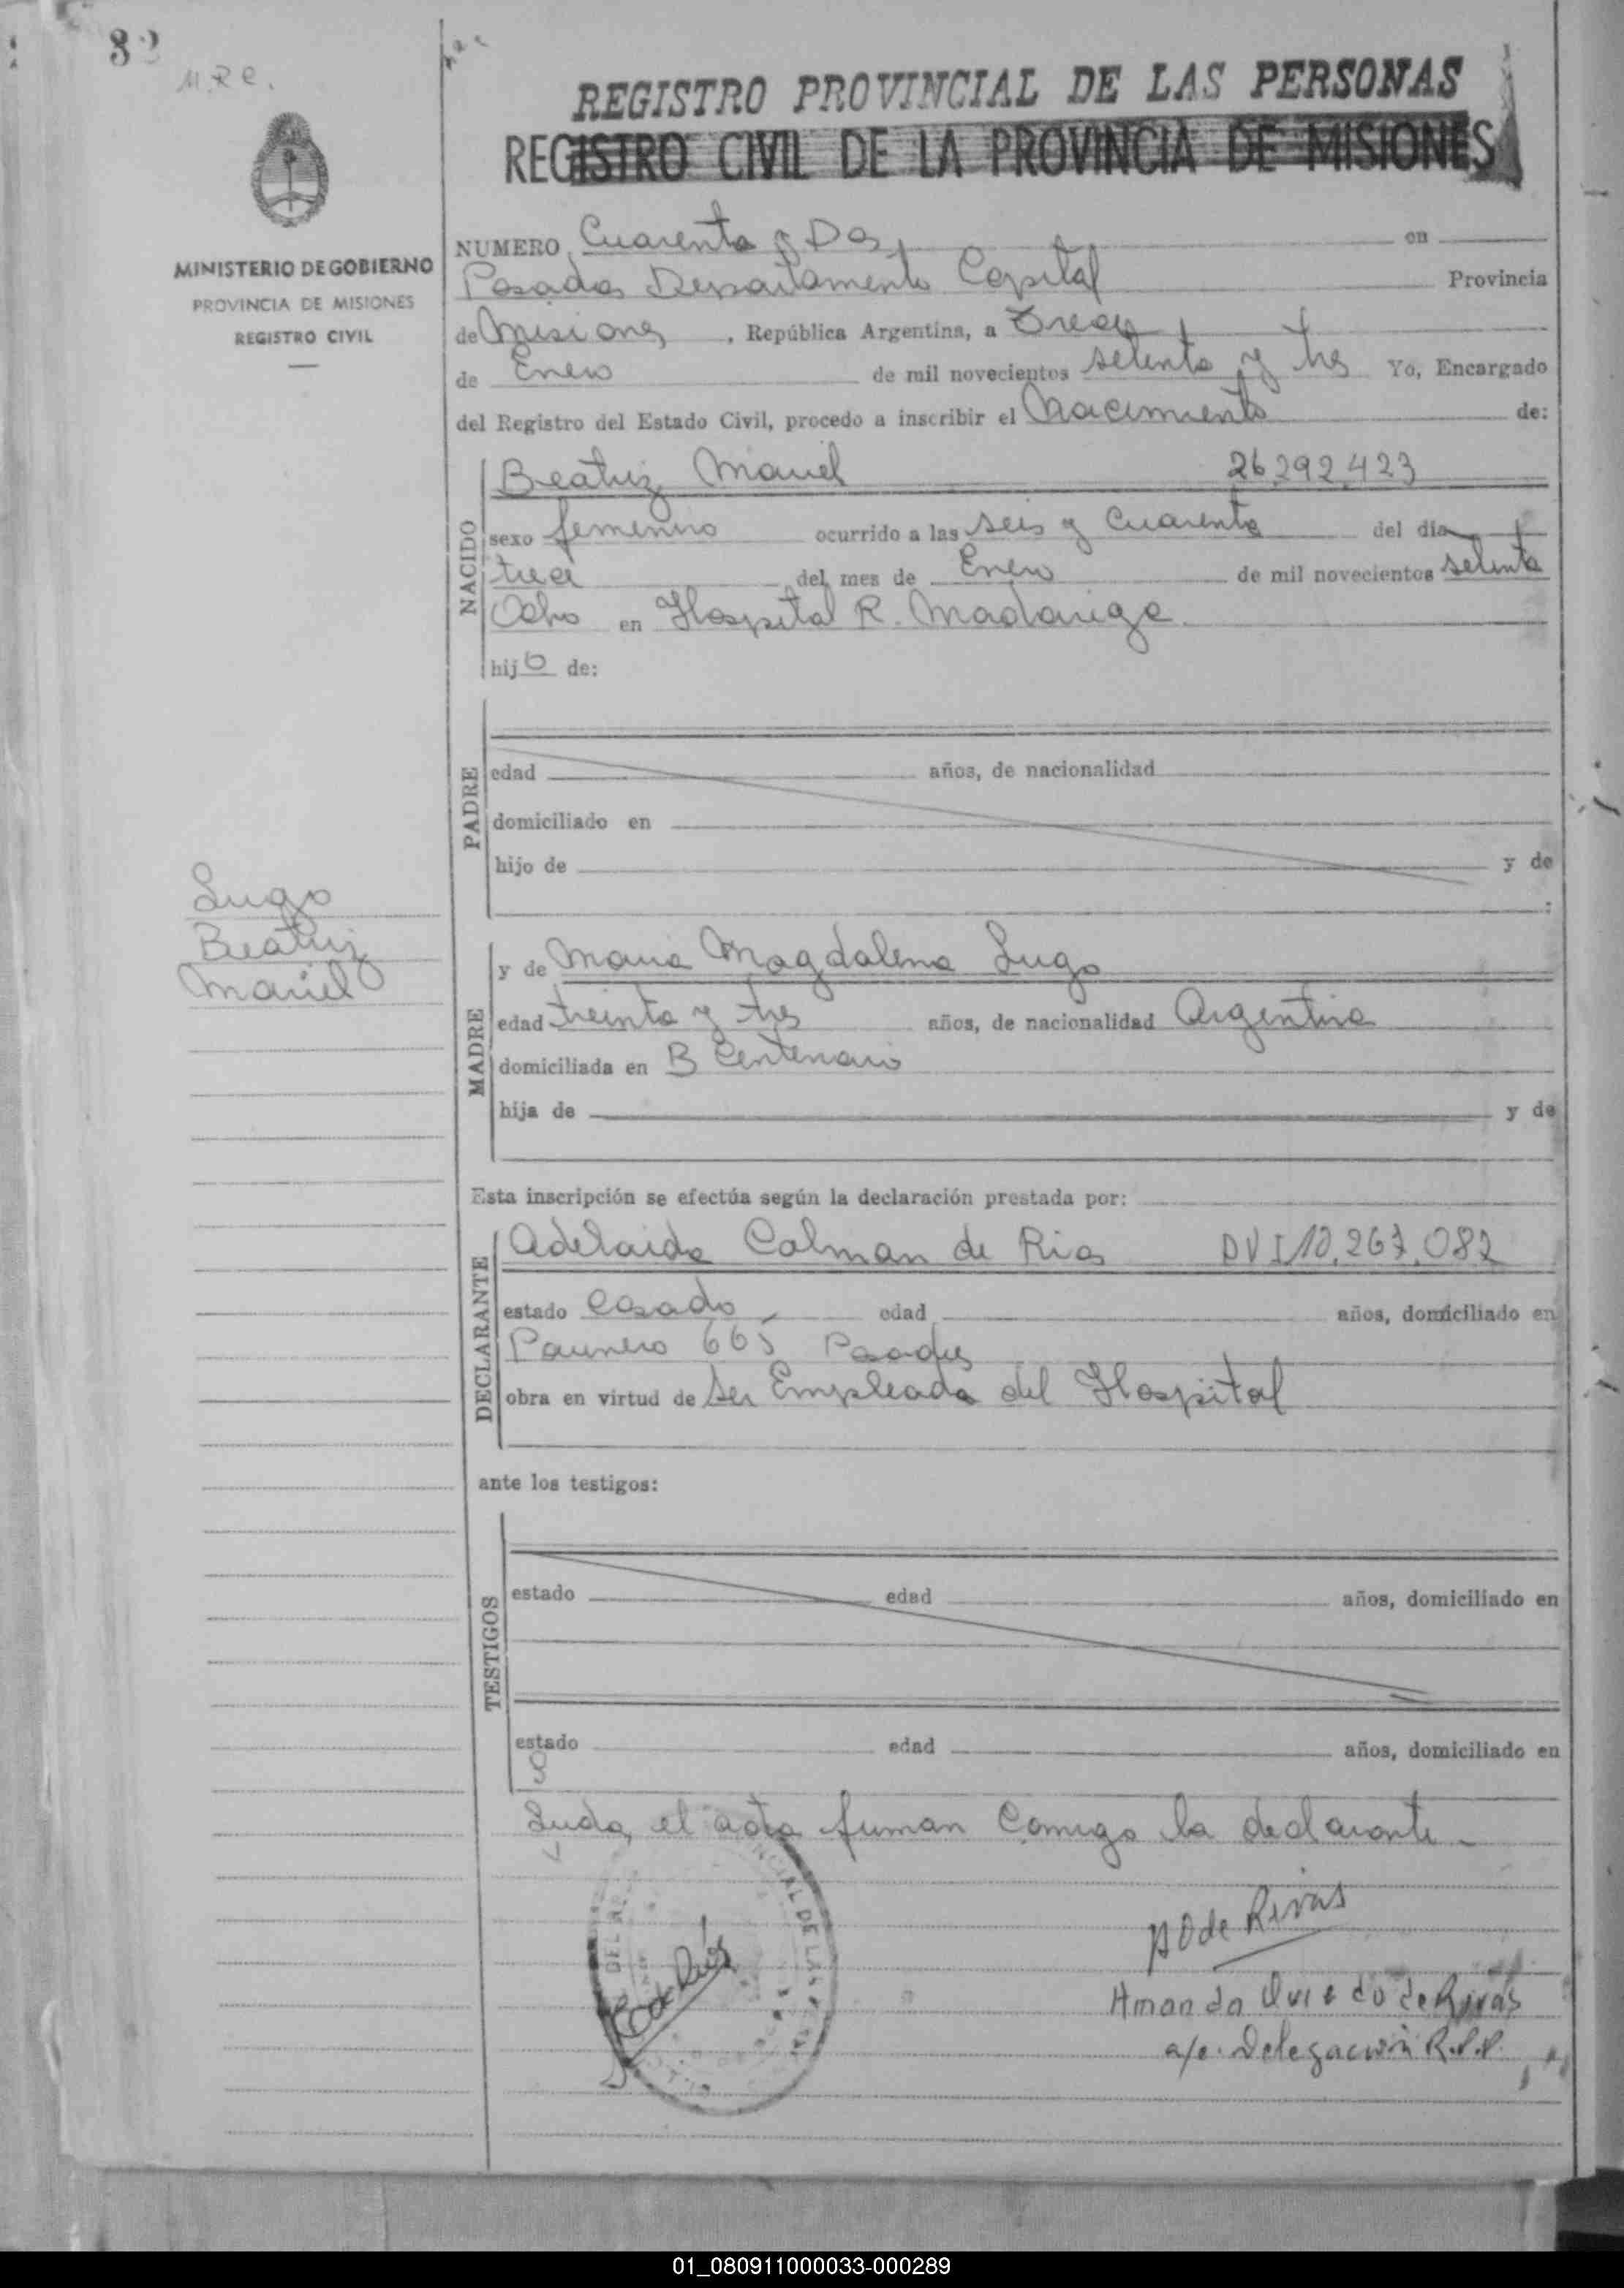 83
M.R.C.
REGISTRO PROVINCIAL DE LAS PERSONAS
REGISTRO CIVIL DE LA PROVINCIA DE MISIONES
MINISTERIO DE GOBIERNO
PROVINCIA DE MISIONES
REGISTRO CIVIL
NUMERO Cuarenta y Dos, en
Posadas Departamento Capital Provincia
de Misiones, República Argentina, a
de Enero de mil novecientos setenta y tres Yo, Encargado
del Registro del Estado Civil, procedo a inscribir el Nacimiento de:
NACIDO
Beatriz Mariel 26.292.423
sexo femenino ocurrido a las seis y Cuarenta del día
tres del mes de Enero de mil novecientos setenta
Ocho en Hospital R. Madariaga
hij o de:
PADRE
edad años, de nacionalidad
domiciliado en
hijo de y de
:
Lugo
Beatriz
Mariel
MADRE
y de Maria Magdalena Lugo
edad treinta y tres años, de nacionalidad Argentina
domiciliada en B Centenario
hija de y de
Esta inscripción se efectúa según la declaración prestada por:
DECLARANTE
Adelaida Colman de Rios DNI 10.267.082
estado Casado edad años, domiciliado en
Paunero 665 Posadas
obra en virtud de Ser Empleada del Hospital
ante los testigos:
TESTIGOS
estado edad años, domiciliado en
estado edad años, domiciliado en
Leida el acta firman Comigo la declarante
CIAL DE LAS
AO de Rivas
Amanda Oviedo de Rivas
a/c. Delegación R.P.P.
01_080911000033-000289